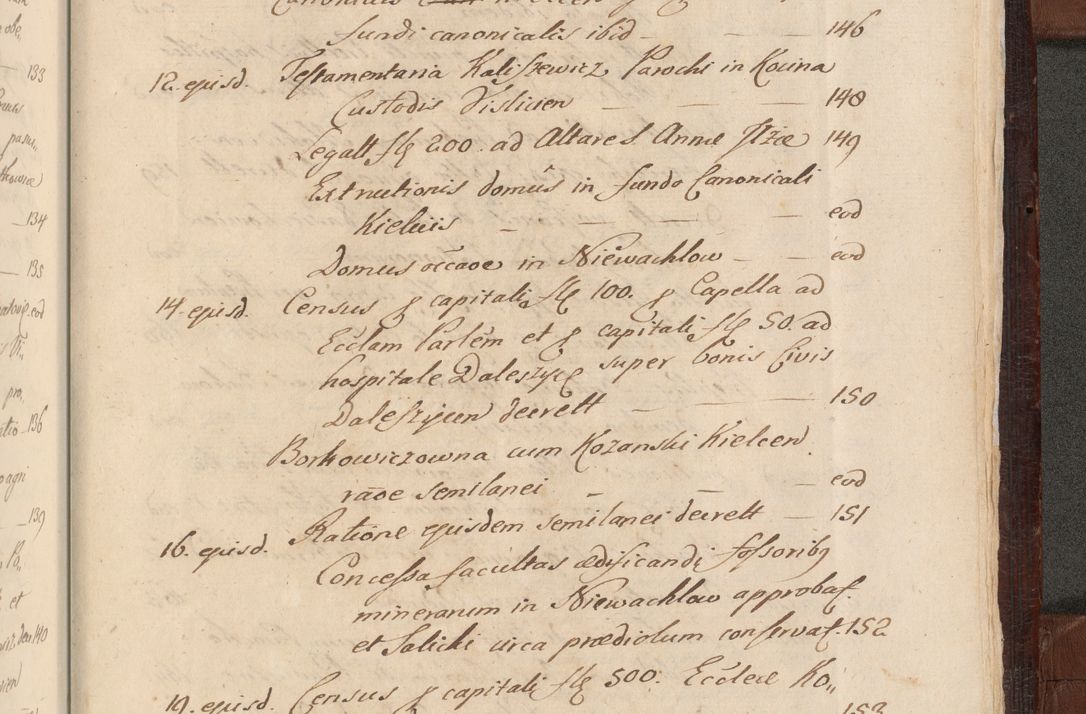 fundi canonicalis ibid — — — 146
12. ejusd. Testamentaria Kaliszewicz Parochi in Kocina
Custodis Vislicien — — — 148
Legatt fl 200. ad Altare S. Annæ Ilzæ 149
Extructionis domûs in fundo Canonicali
Kielciis — — — eod
Domus occaõe in Niewachlow — — eod
14. ejusd. Census p capitali fl 100. p Capella ad
Ecclam Parlem et p capitali fl 50. ad
hospitale Daleszyce super bonis Civis
Daleszycen decrett — — 150
Borkowiczowna cum Kozanski Kielcen
raõe semilanei — — eod
Ratione ejusdem semilanei decrett — 151
16. ejusd. Concessa facultas ædificandi fossoribus
minerarum in Niewachlow approbat.
et Salicki circa prædiolum conservat. 152
19. ejusd. Census p capitali fl 500. Ecclesiæ Ko„
153
133
134
135
eod
136
139
140
et